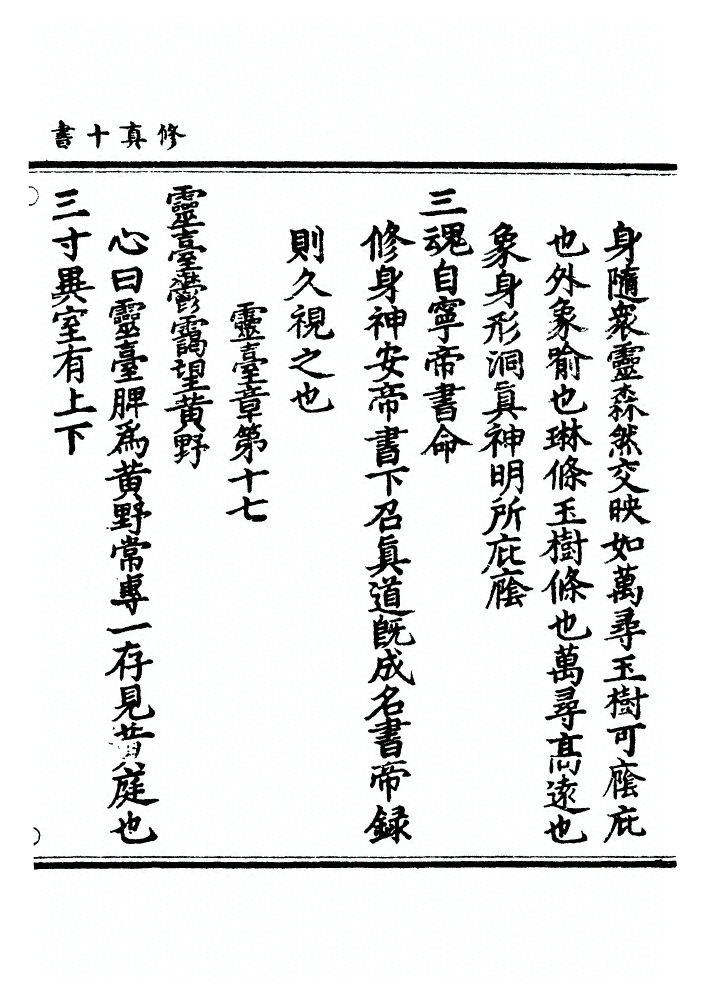 修真十書
身隨衆靈森然交映如萬尋玉樹可廕庇
也外象喻也琳條玉樹條也萬尋髙遠也
象身形洞眞神明所庇廕
三魂自寧帝書命
修身神安帝書下召眞道旣成名書帝録
則久視之也
靈臺章第十七
靈臺鬱靄望黄野
心曰靈臺脾爲黄野常專一存見黄庭也
三寸異室有上下